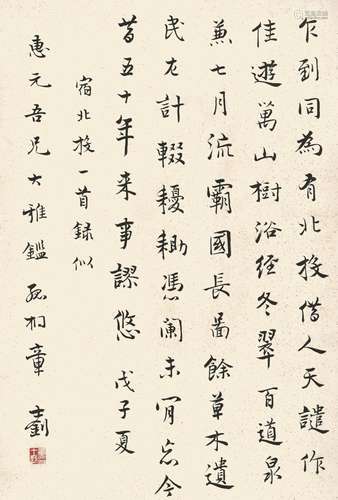 乍到同為有北投借人天譴作
佳遊萬山樹浴經冬翠百道泉
兼七月流霸國長啚餘草木遺
民左計輟耰耡慿闌未肎忘今
昔五十年来事謬悠 戊子夏
宿北投一首録似
惠元吾兄大雅鑑 孤桐章士釗